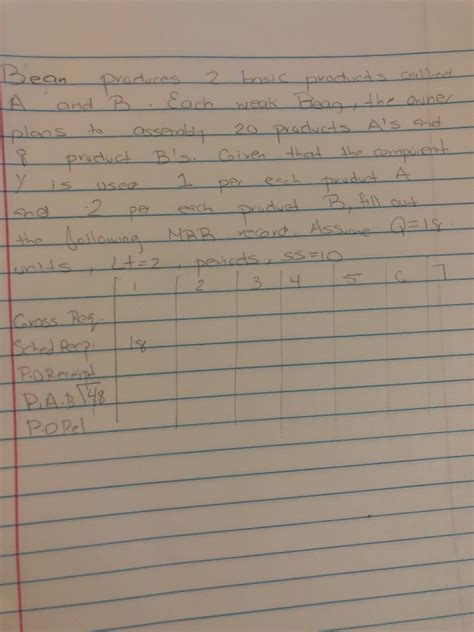 Bean produces 2 basic products called
A and B. Each weak Bean, the owner
plans to assembly 20 products A's and
8 product B's. Given that the component
Y is used 1 per each product A
and 2 per each product B, fill out
the following MRB record. Assume Q=18
units, Lt=2, periods, ss=10
1 2 3 4 5 6 7
Gross Req.
Sched Recp. 18
P.O Receipt
P.A.B 48
P.O Rel